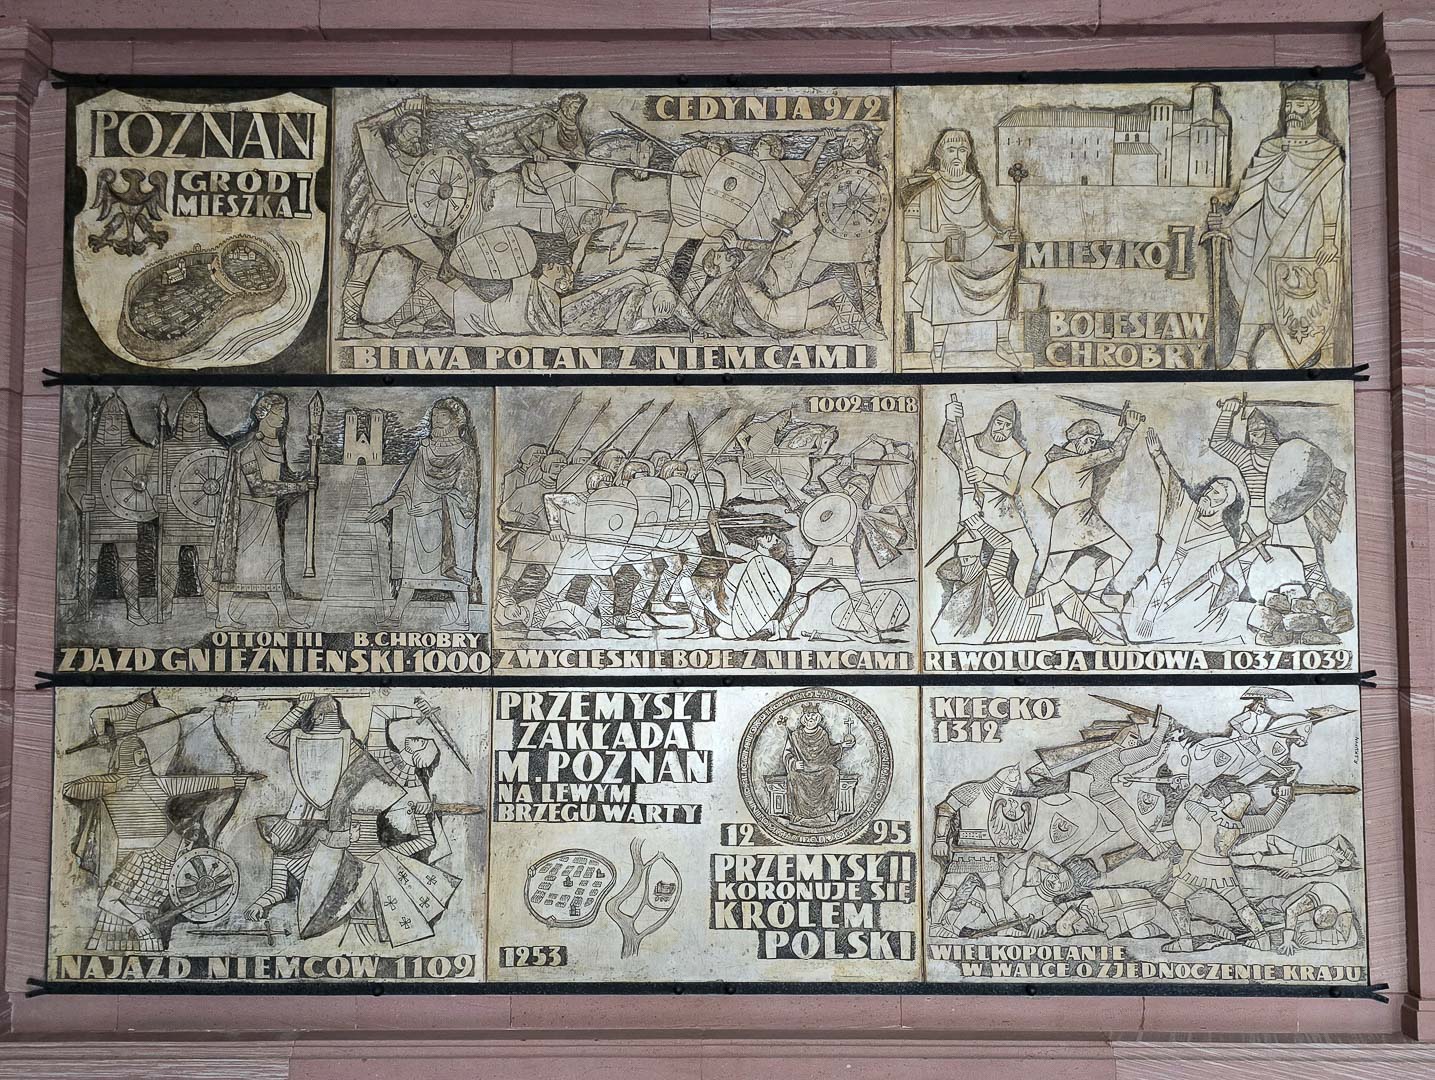 POZNAŃ
GRÓD
MIESZKA I
CEDYNIA 972
BITWA POLAN Z NIEMCAMI
MIESZKO I
BOLESŁAW
CHROBRY
OTTON III B. CHROBRY
ZJAZD GNIEŹNIEŃSKI · 1000
1002-1018
ZWYCIĘSKIE BOJE Z NIEMCAMI
REWOLUCJA LUDOWA 1037-1039
NAJAZD NIEMCÓW 1109
PRZEMYSŁ I
ZAKŁADA
M. POZNAŃ
NA LEWYM
BRZEGU WARTY
1253
1295
PRZEMYSŁ II
KORONUJE SIĘ
KRÓLEM
POLSKI
KŁECKO
1312
WIELKOPOLANIE
W WALCE O ZJEDNOCZENIE KRAJU